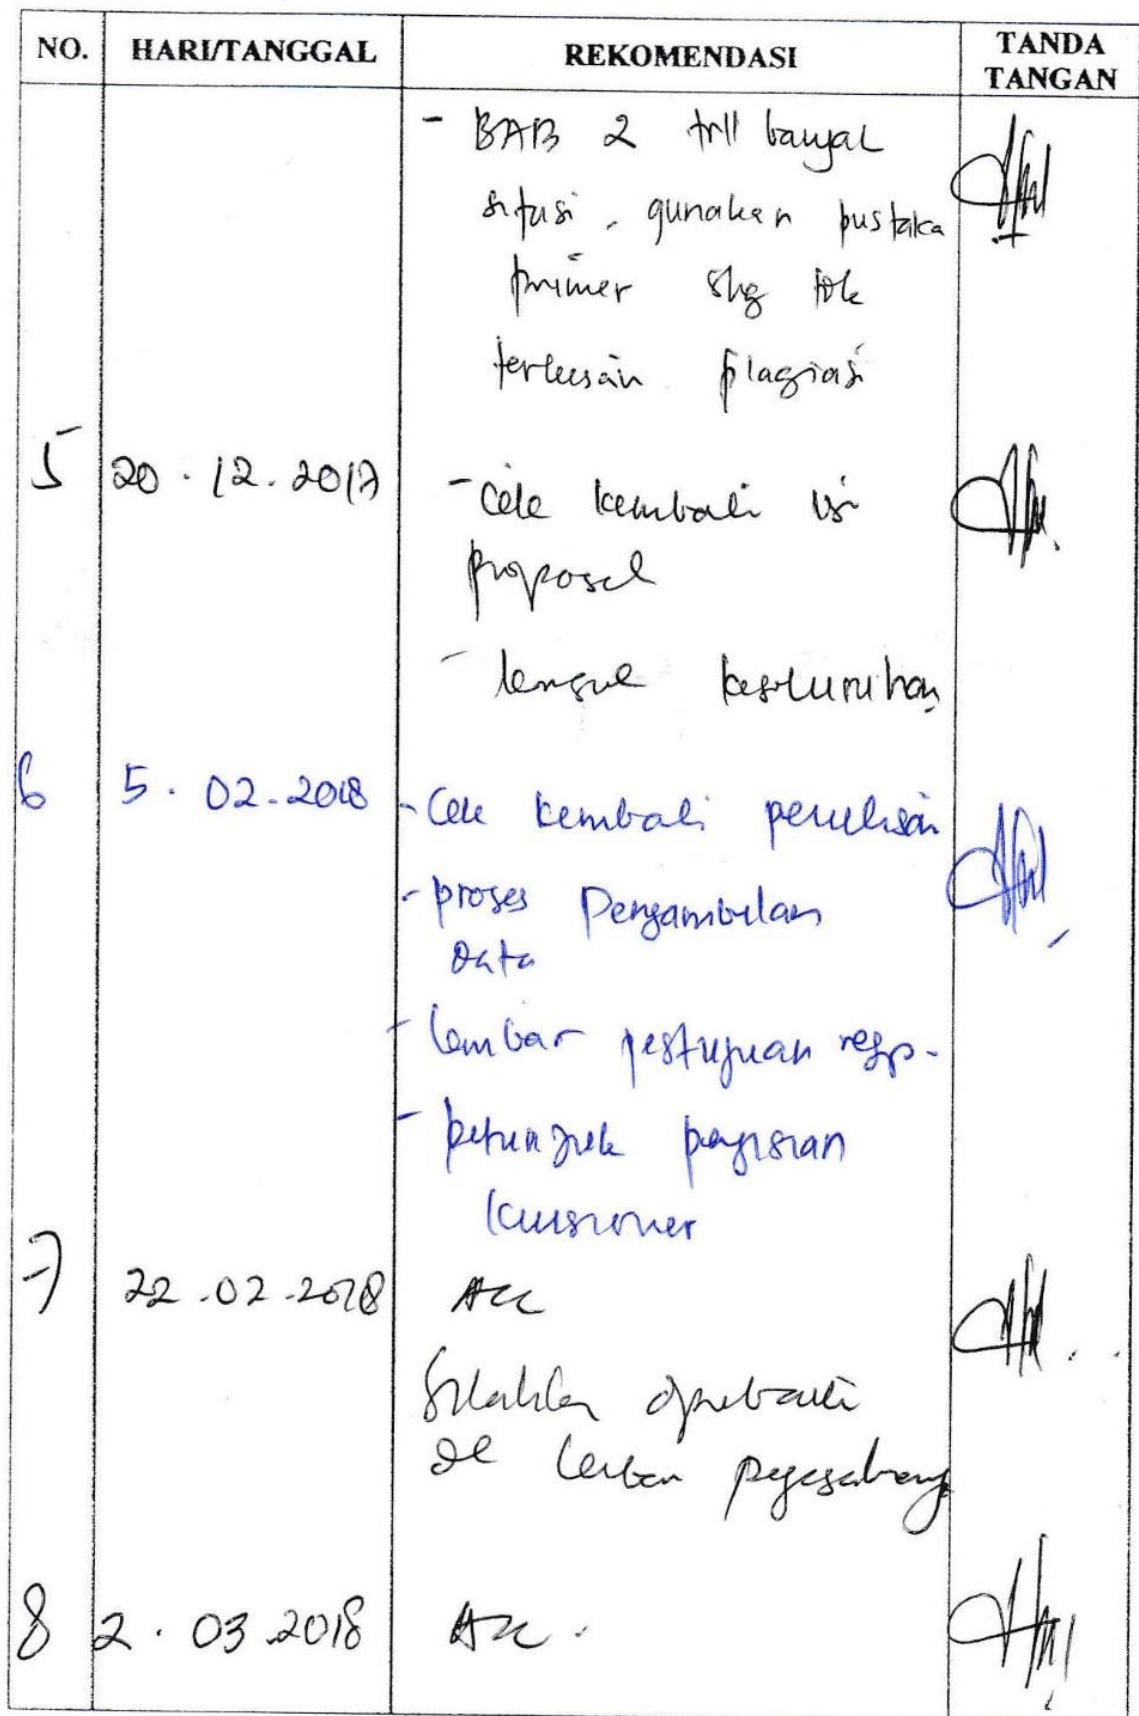 NO. HARI/TANGGAL REKOMENDASI TANDA TANGAN
- BAB 2 trll banyak
sitasi, gunakan pustaka
primer shg tdk
terkesan plagiasi
5 20.12.2017 - Cek kembali isi
proposal
- keseluruhan
6 5.02.2018 - Cek kembali penulisan
- proses Pengambilan
Data
- lembar pestujuan resp.
- petunjuk pengisian
kuisioner
7 22.02.2018 Acc
Silahkan diperbaiki
8 2.03.2018 Acc.